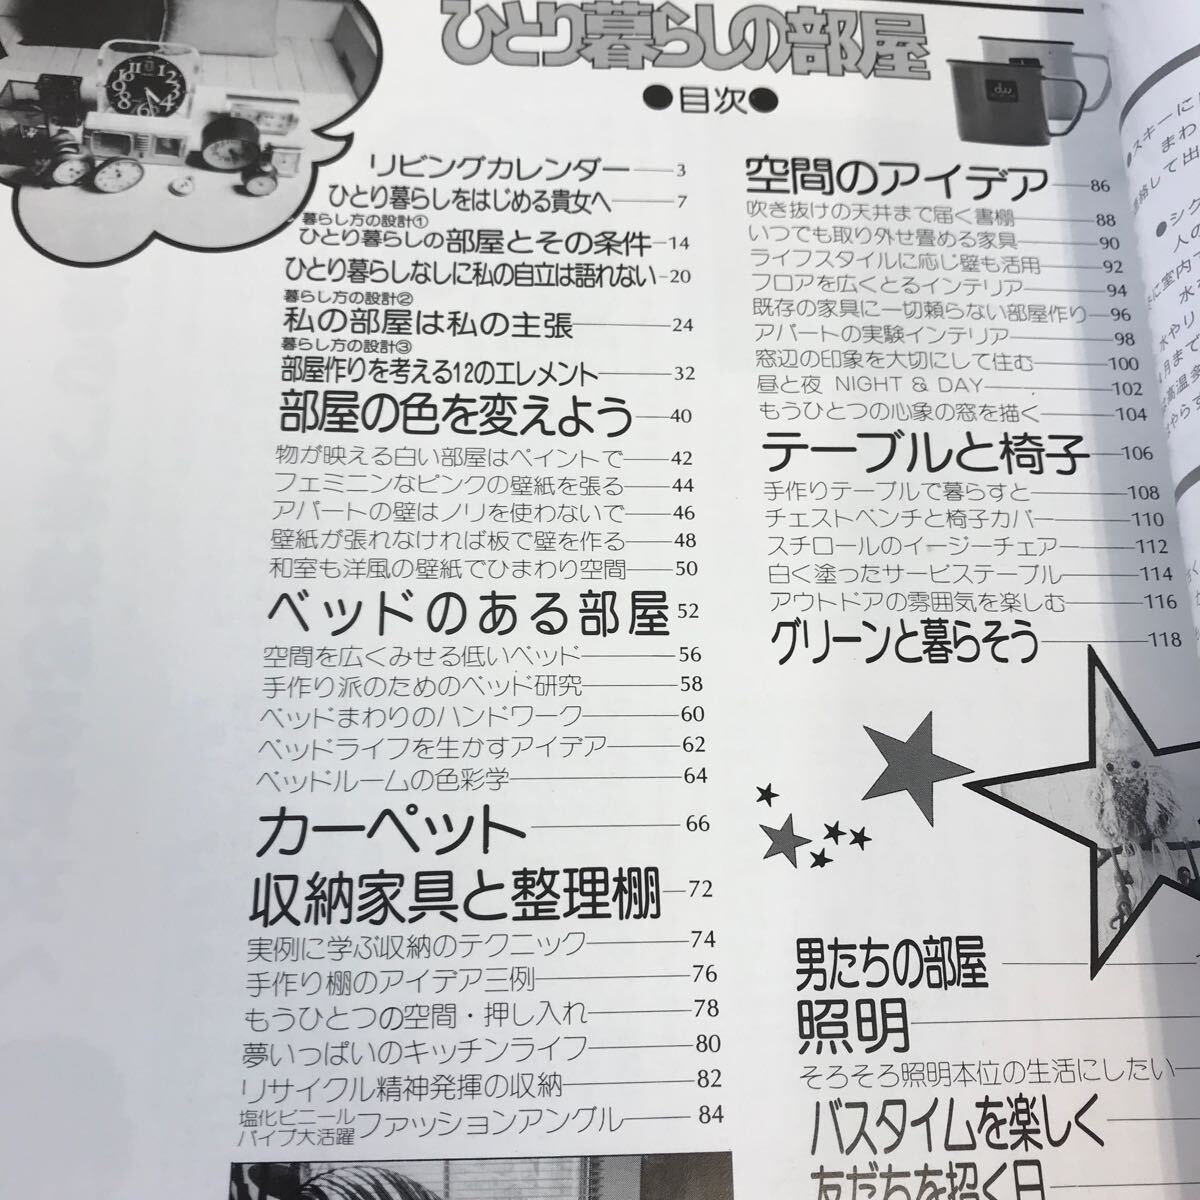 ひとり暮らしの部屋
●目次●
リビングカレンダー 3
ひとり暮らしをはじめる貴女へ 7
暮らし方の設計①
ひとり暮らしの部屋とその条件 14
ひとり暮らしなしに私の自立は語れない 20
暮らし方の設計②
私の部屋は私の主張 24
暮らし方の設計③
部屋作りを考える12のエレメント 32
部屋の色を変えよう 40
物が映える白い部屋はペイントで 42
フェミニンなピンクの壁紙を張る 44
アパートの壁はノリを使わないで 46
壁紙が張れなければ板で壁を作る 48
和室も洋風の壁紙でひまわり空間 50
ベッドのある部屋 52
空間を広くみせる低いベッド 56
手作り派のためのベッド研究 58
ベッドまわりのハンドワーク 60
ベッドライフを生かすアイデア 62
ベッドルームの色彩学 64
カーペット 66
収納家具と整理棚 72
実例に学ぶ収納のテクニック 74
手作り棚のアイデア三例 76
もうひとつの空間・押し入れ 78
夢いっぱいのキッチンライフ 80
リサイクル精神発揮の収納 82
塩化ビニール
パイプ大活躍 ファッションアングル 84
空間のアイデア 86
吹き抜けの天井まで届く書棚 88
いつでも取り外せ畳める家具 90
ライフスタイルに応じ壁も活用 92
フロアを広くとるインテリア 94
既存の家具に一切頼らない部屋作り 96
アパートの実験インテリア 98
窓辺の印象を大切にして住む 100
昼と夜 NIGHT & DAY 102
もうひとつの心象の窓を描く 104
テーブルと椅子 106
手作りテーブルで暮らすと 108
チェストベンチと椅子カバー 110
スチロールのイージーチェアー 112
白く塗ったサービステーブル 114
アウトドアの雰囲気を楽しむ 116
グリーンと暮らそう 118
男たちの部屋
照明
そろそろ照明本位の生活にしたい
バスタイムを楽しく
友だちを招く日
●スキーに
まわ
連絡して出
●シク
人の
に室内で
水
水やり
月まで
高温多
はやらす